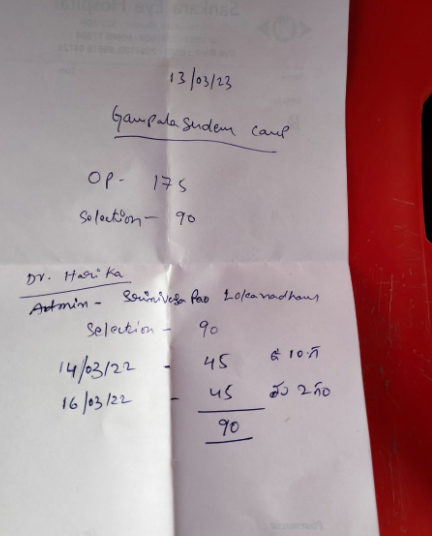 13/03/23
Gampalagudem camp
OP - 175
Selection - 90
Dr. Harika
Admin - Srinivasa Rao Lokanadham
Selection - 90
14/03/22 - 45 ఉ 10 గ
16/03/22 - 45 2 గం
90